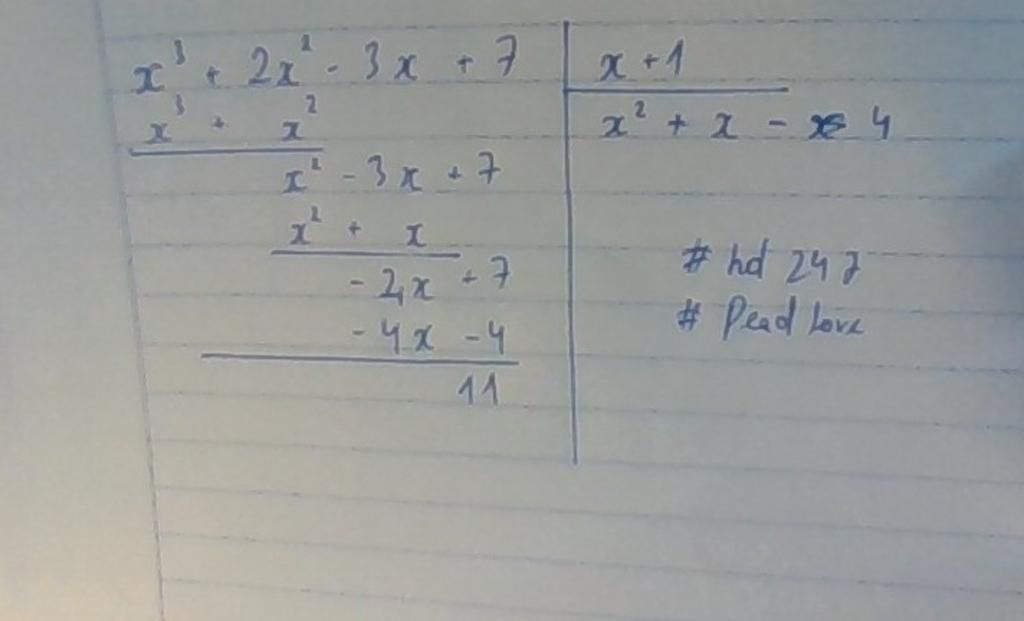 x³ + 2x² - 3x + 7 | x + 1
x³ + x² | x² + x - 4
x² - 3x + 7
x² + x
- 4x + 7
- 4x - 4
11
# hd 247
# Dead Love